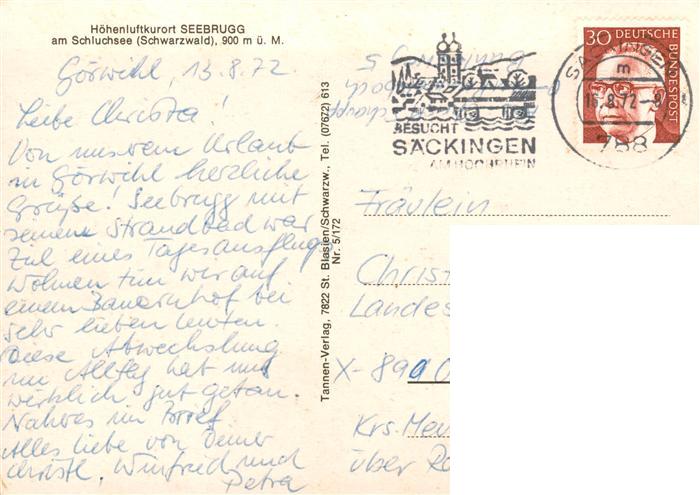 Höhenluftkurort SEEBRUGG
am Schluchsee (Schwarzwald), 900 m ü. M.
Görwihl, 13.8.72
Liebe Christa!
Von unserem Urlaub
in Görwihl herzliche
Grüße! Seebrugg mit
seinem Strandbad war
Ziel eines Tagesausflugs
Wohnen tun wir auf
einem Bauernhof bei
sehr lieben Leuten.
Diese Abwechslung
im Alltag hat uns
wirklich gut getan.
Näheres im Brief
Alles liebe von Deiner
Christl, Winfried und
Petra
Tannen-Verlag, 7822 St. Blasien/Schwarzw., Tel. (07672) 613
Nr. 5/172
BESUCHT
SÄCKINGEN
AM HOCHRHEIN
SÄCKINGEN
m
16.8.72-9
788
30 DEUTSCHE
BUNDESPOST
Fräulein
Christ
Landes
X-890
Krs. Mei
über